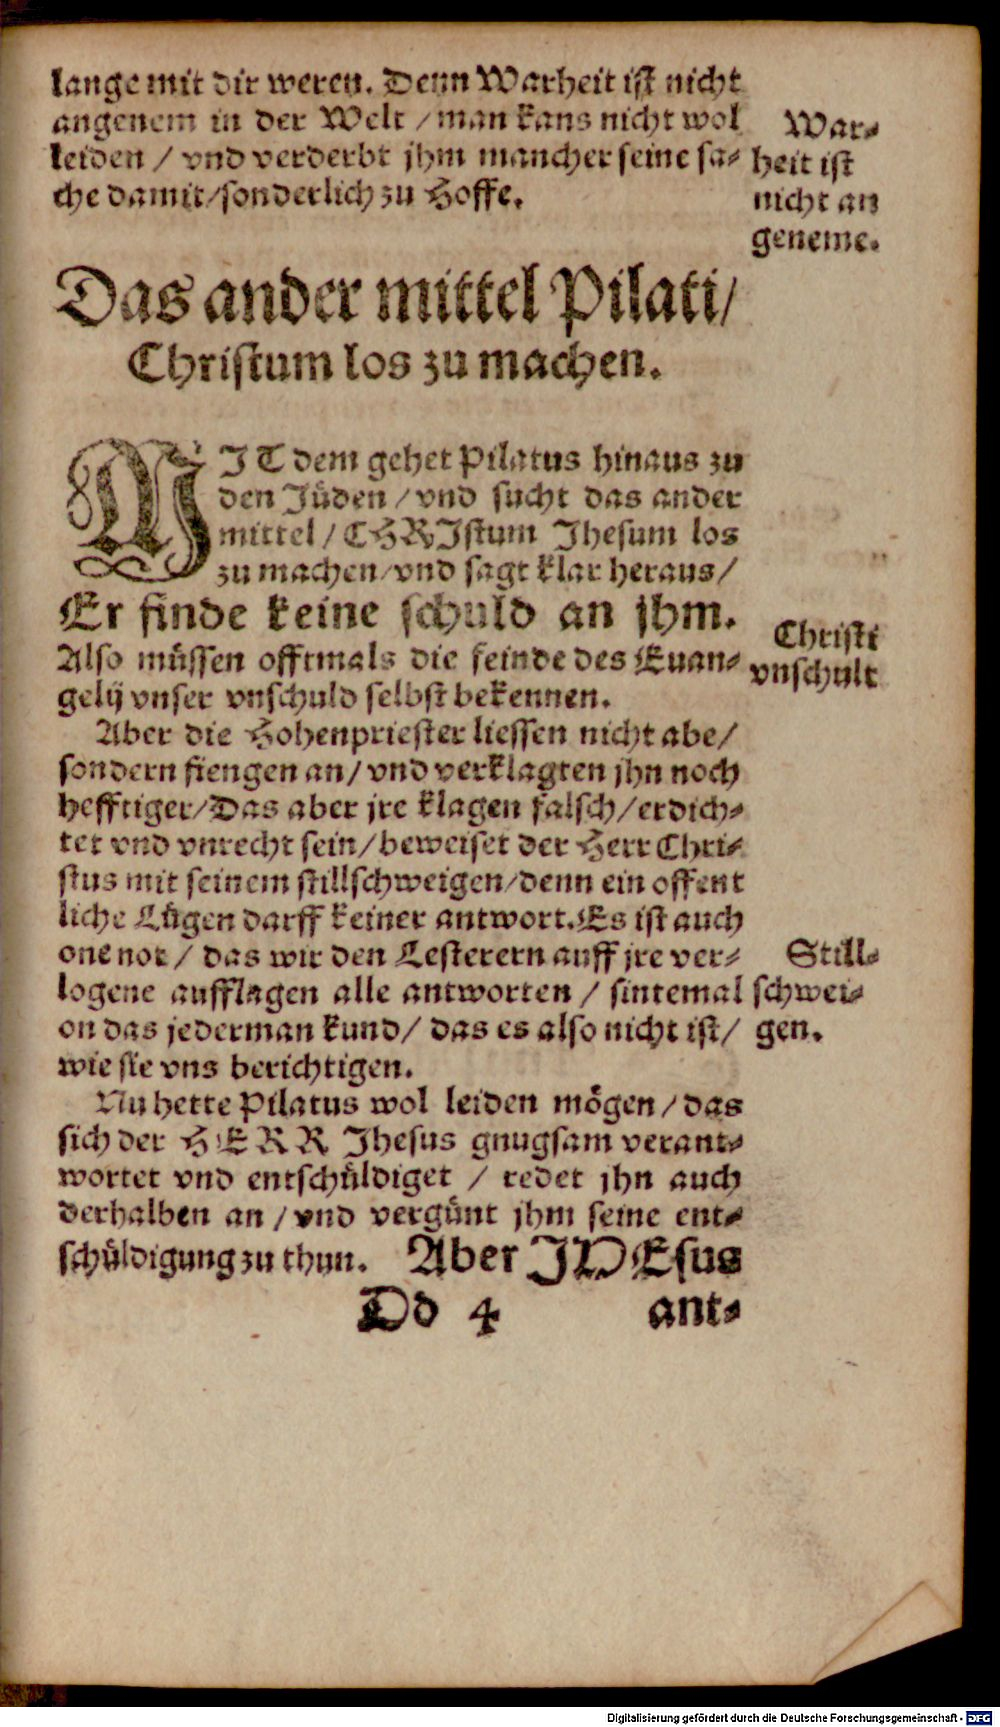 lange mit dir weren. Denn Warheit ist nicht
angenem in der Welt / man kans nicht wol
leiden / vnd verderbt jhm mancher seine sa-
che damit / sonderlich zu Hoffe.
War-
heit ist
nicht an
geneme.
Das ander mittel Pilati /
Christum los zu machen.
MIT dem gehet Pilatus hinaus zu
den Jüden / vnd sucht das ander
mittel / CHRIstum Jhesum los
zu machen / vnd sagt klar heraus /
Er finde keine schuld an jhm.
Also müssen offtmals die feinde des Euan-
gelij vnser vnschuld selbst bekennen.
Christi
vnschult
Aber die Hohenpriester liessen nicht abe /
sondern fiengen an / vnd verklagten jhn noch
hefftiger / Das aber jre klagen falsch / erdich-
tet vnd vnrecht sein / beweiset der Herr Chri-
stus mit seinem stillschweigen / denn ein offent
liche Lügen darff keiner antwort. Es ist auch
one not / das wir den Lesterern auff jre ver-
logene aufflagen alle antworten / sintemal
on das jederman kund / das es also nicht ist /
wie sie vns berichtigen.
Still-
schwei-
gen.
Nu hette Pilatus wol leiden mögen / das
sich der HERR Jhesus gnugsam verant-
wortet vnd entschüldiget / redet jhn auch
derhalben an / vnd vergünt jhm seine ent-
schüldigung zu thun. Aber JHEsus
Dd 4 ant-
Digitalisierung gefördert durch die Deutsche Forschungsgemeinschaft - DFG